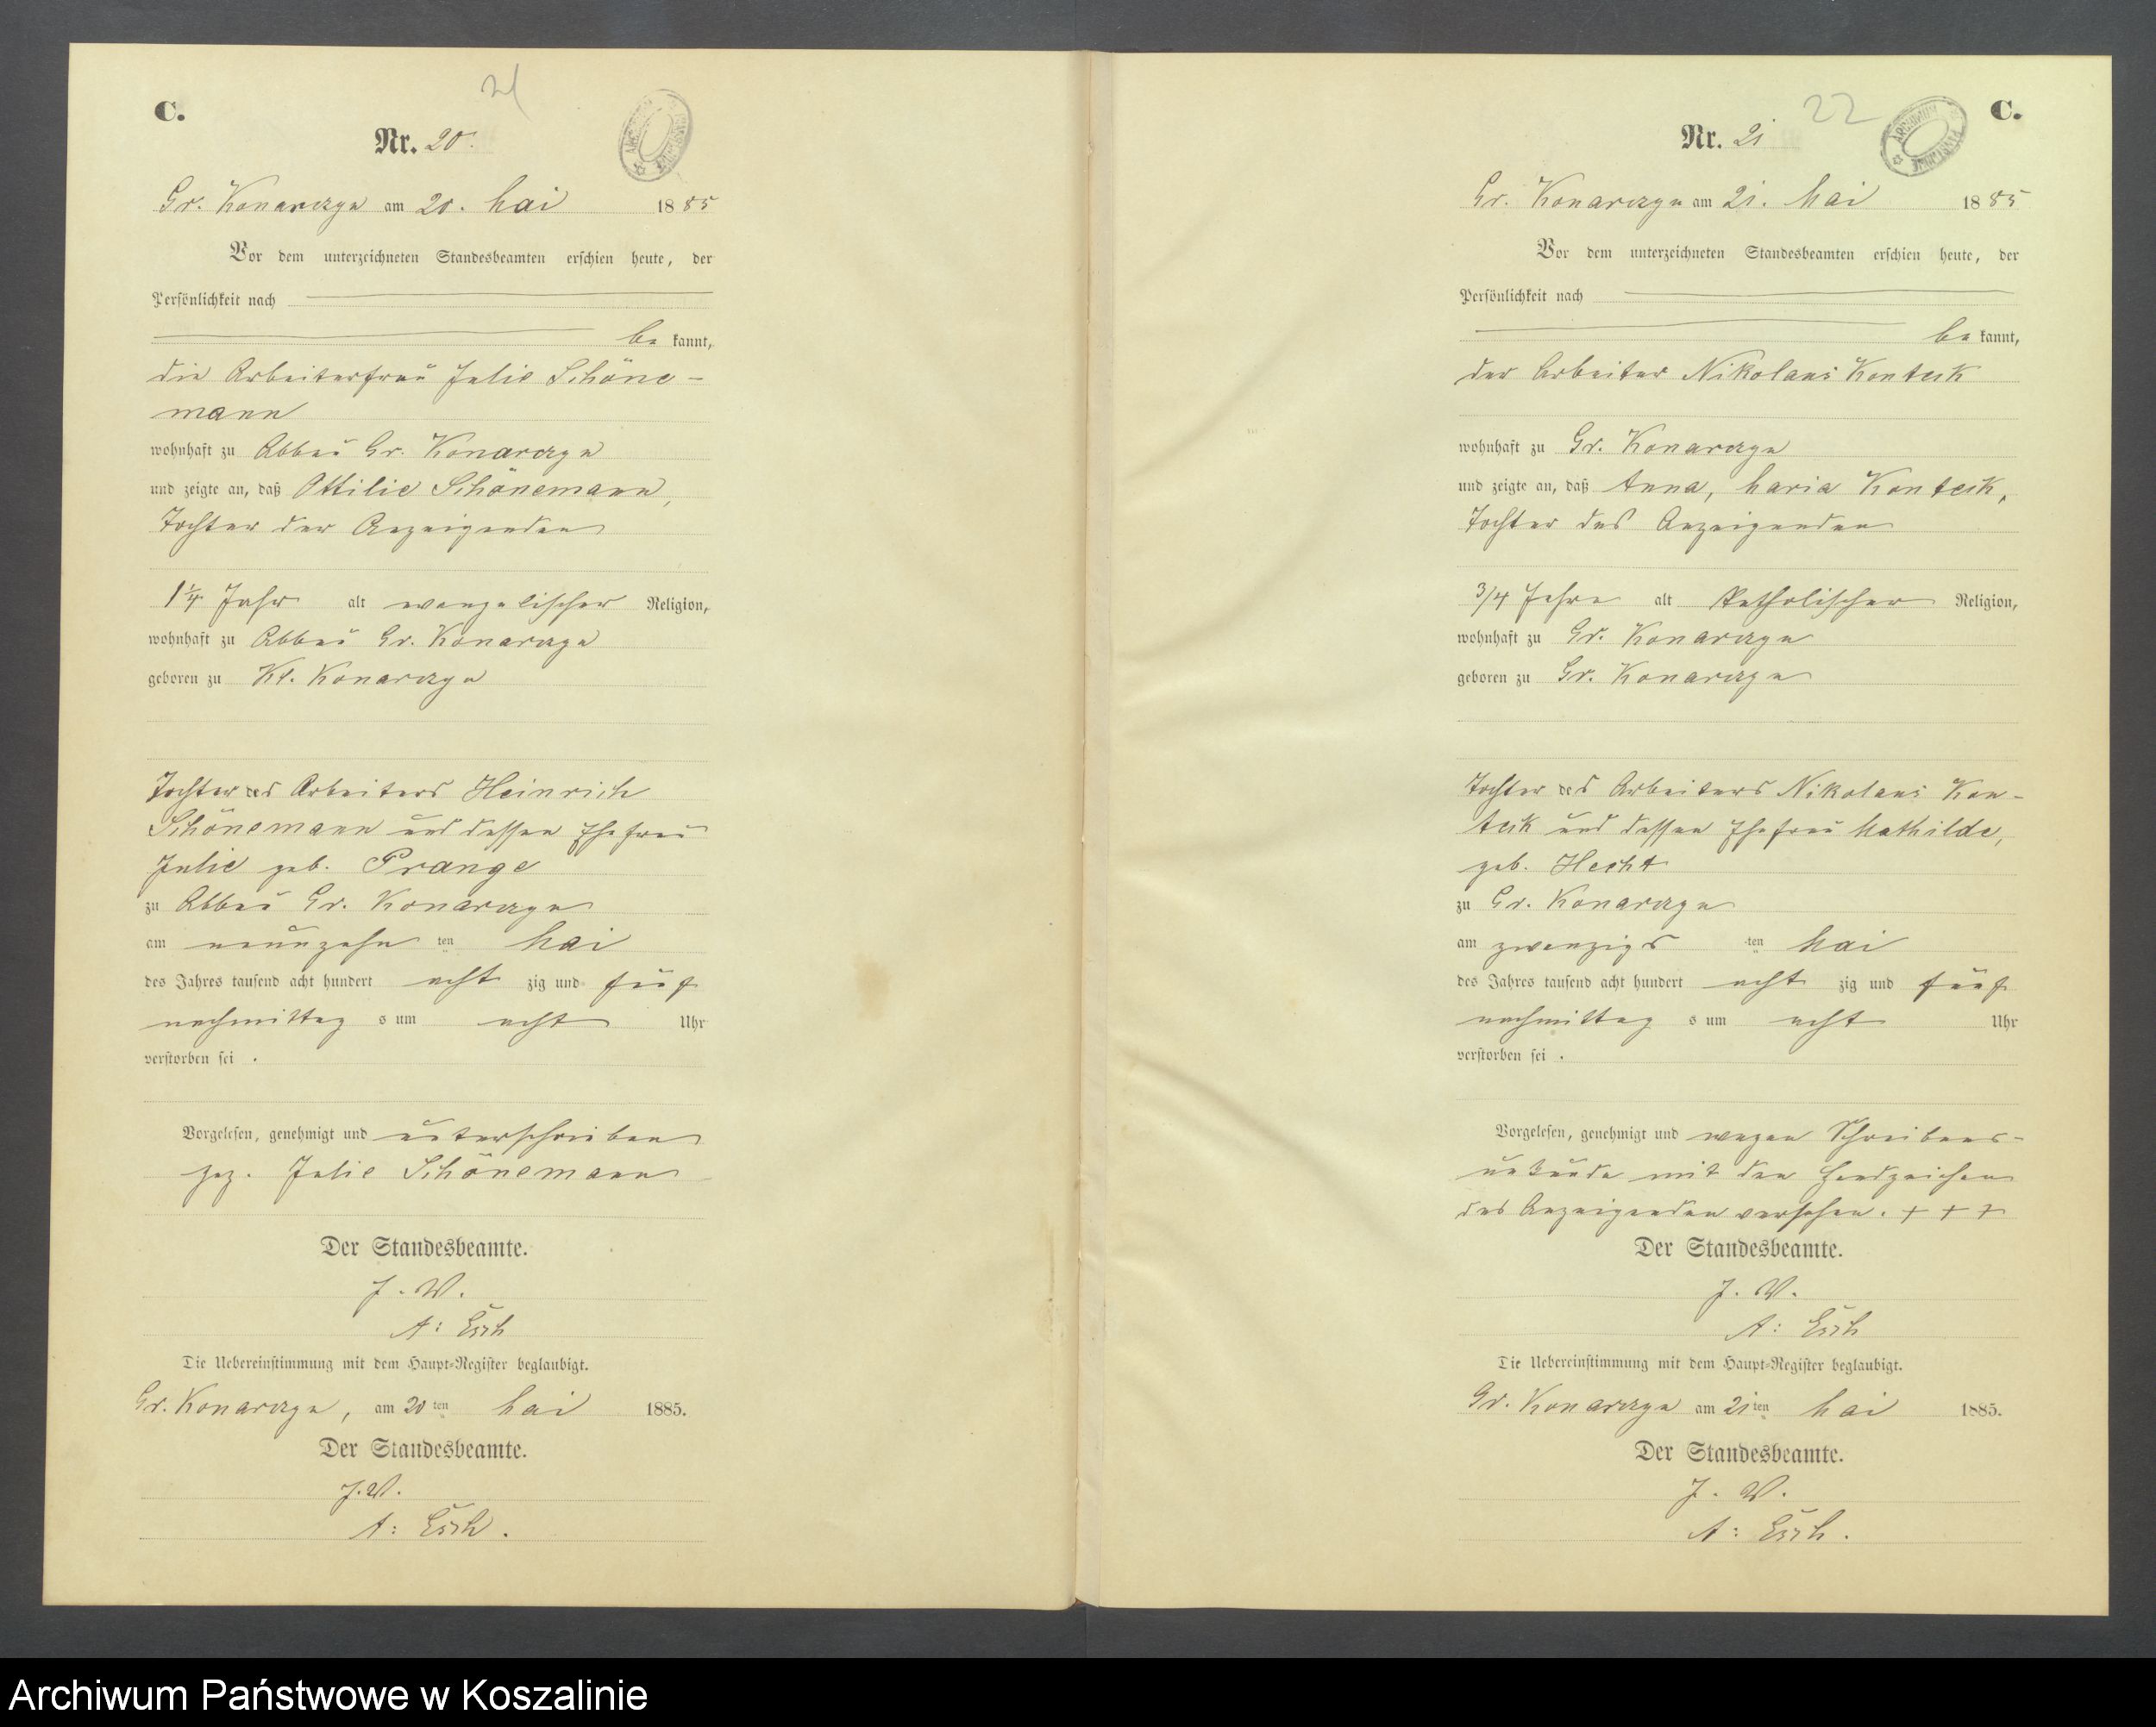 C.
21
Nr. 20.
Gr. Konarczyn am 20. Mai 1885
Vor dem unterzeichneten Standesbeamten erschien heute, der
Persönlichkeit nach
be kannt,
die Arbeiterfrau Julie Schöne-
mann
wohnhaft zu Abbau Gr. Konarczyn
und zeigte an, daß Ottilie Schönemann,
Tochter der Anzeigenden
1 1/4 Jahr alt evangelischer Religion,
wohnhaft zu Abbau Gr. Konarczyn
geboren zu Kl. Konarczyn
Tochter des Arbeiters Heinrich
Schönemann und dessen Ehefrau
Julie geb. Prange
zu Abbau Gr. Konarczyn
am neunzehn ten Mai
des Jahres tausend acht hundert acht zig und fünf
nachmittag s um acht Uhr
verstorben sei .
Vorgelesen, genehmigt und unterschrieben
gez. Julie Schönemann
Der Standesbeamte.
J. V.
A: Esch
Die Uebereinstimmung mit dem Haupt-Register beglaubigt.
Gr. Konarczyn, am 20 ten Mai 1885.
Der Standesbeamte.
J. V.
A: Esch.
22
C.
Nr. 21
Gr. Konarczyn am 21. Mai 1885
Vor dem unterzeichneten Standesbeamten erschien heute, der
Persönlichkeit nach
be kannt,
der Arbeiter Nikolaus Konteck
wohnhaft zu Gr. Konarczyn
und zeigte an, daß Anna, Maria Konteck,
Tochter des Anzeigenden
3/4 Jahre alt katholischer Religion,
wohnhaft zu Gr. Konarczyn
geboren zu Gr. Konarczyn
Tochter des Arbeiters Nikolaus Kon-
teck und dessen Ehefrau Mathilde,
geb. Hecht
zu Gr. Konarczyn
am zwanzigs ten Mai
des Jahres tausend acht hundert acht zig und fünf
nachmittag s um acht Uhr
verstorben sei .
Vorgelesen, genehmigt und wegen Schreibens-
unkunde mit den Handzeichen
des Anzeigenden versehen. + + +
Der Standesbeamte.
J. V.
A: Esch
Die Uebereinstimmung mit dem Haupt-Register beglaubigt.
Gr. Konarczyn am 21 ten Mai 1885.
Der Standesbeamte.
J. V.
A: Esch.
Archiwum Państwowe w Koszalinie